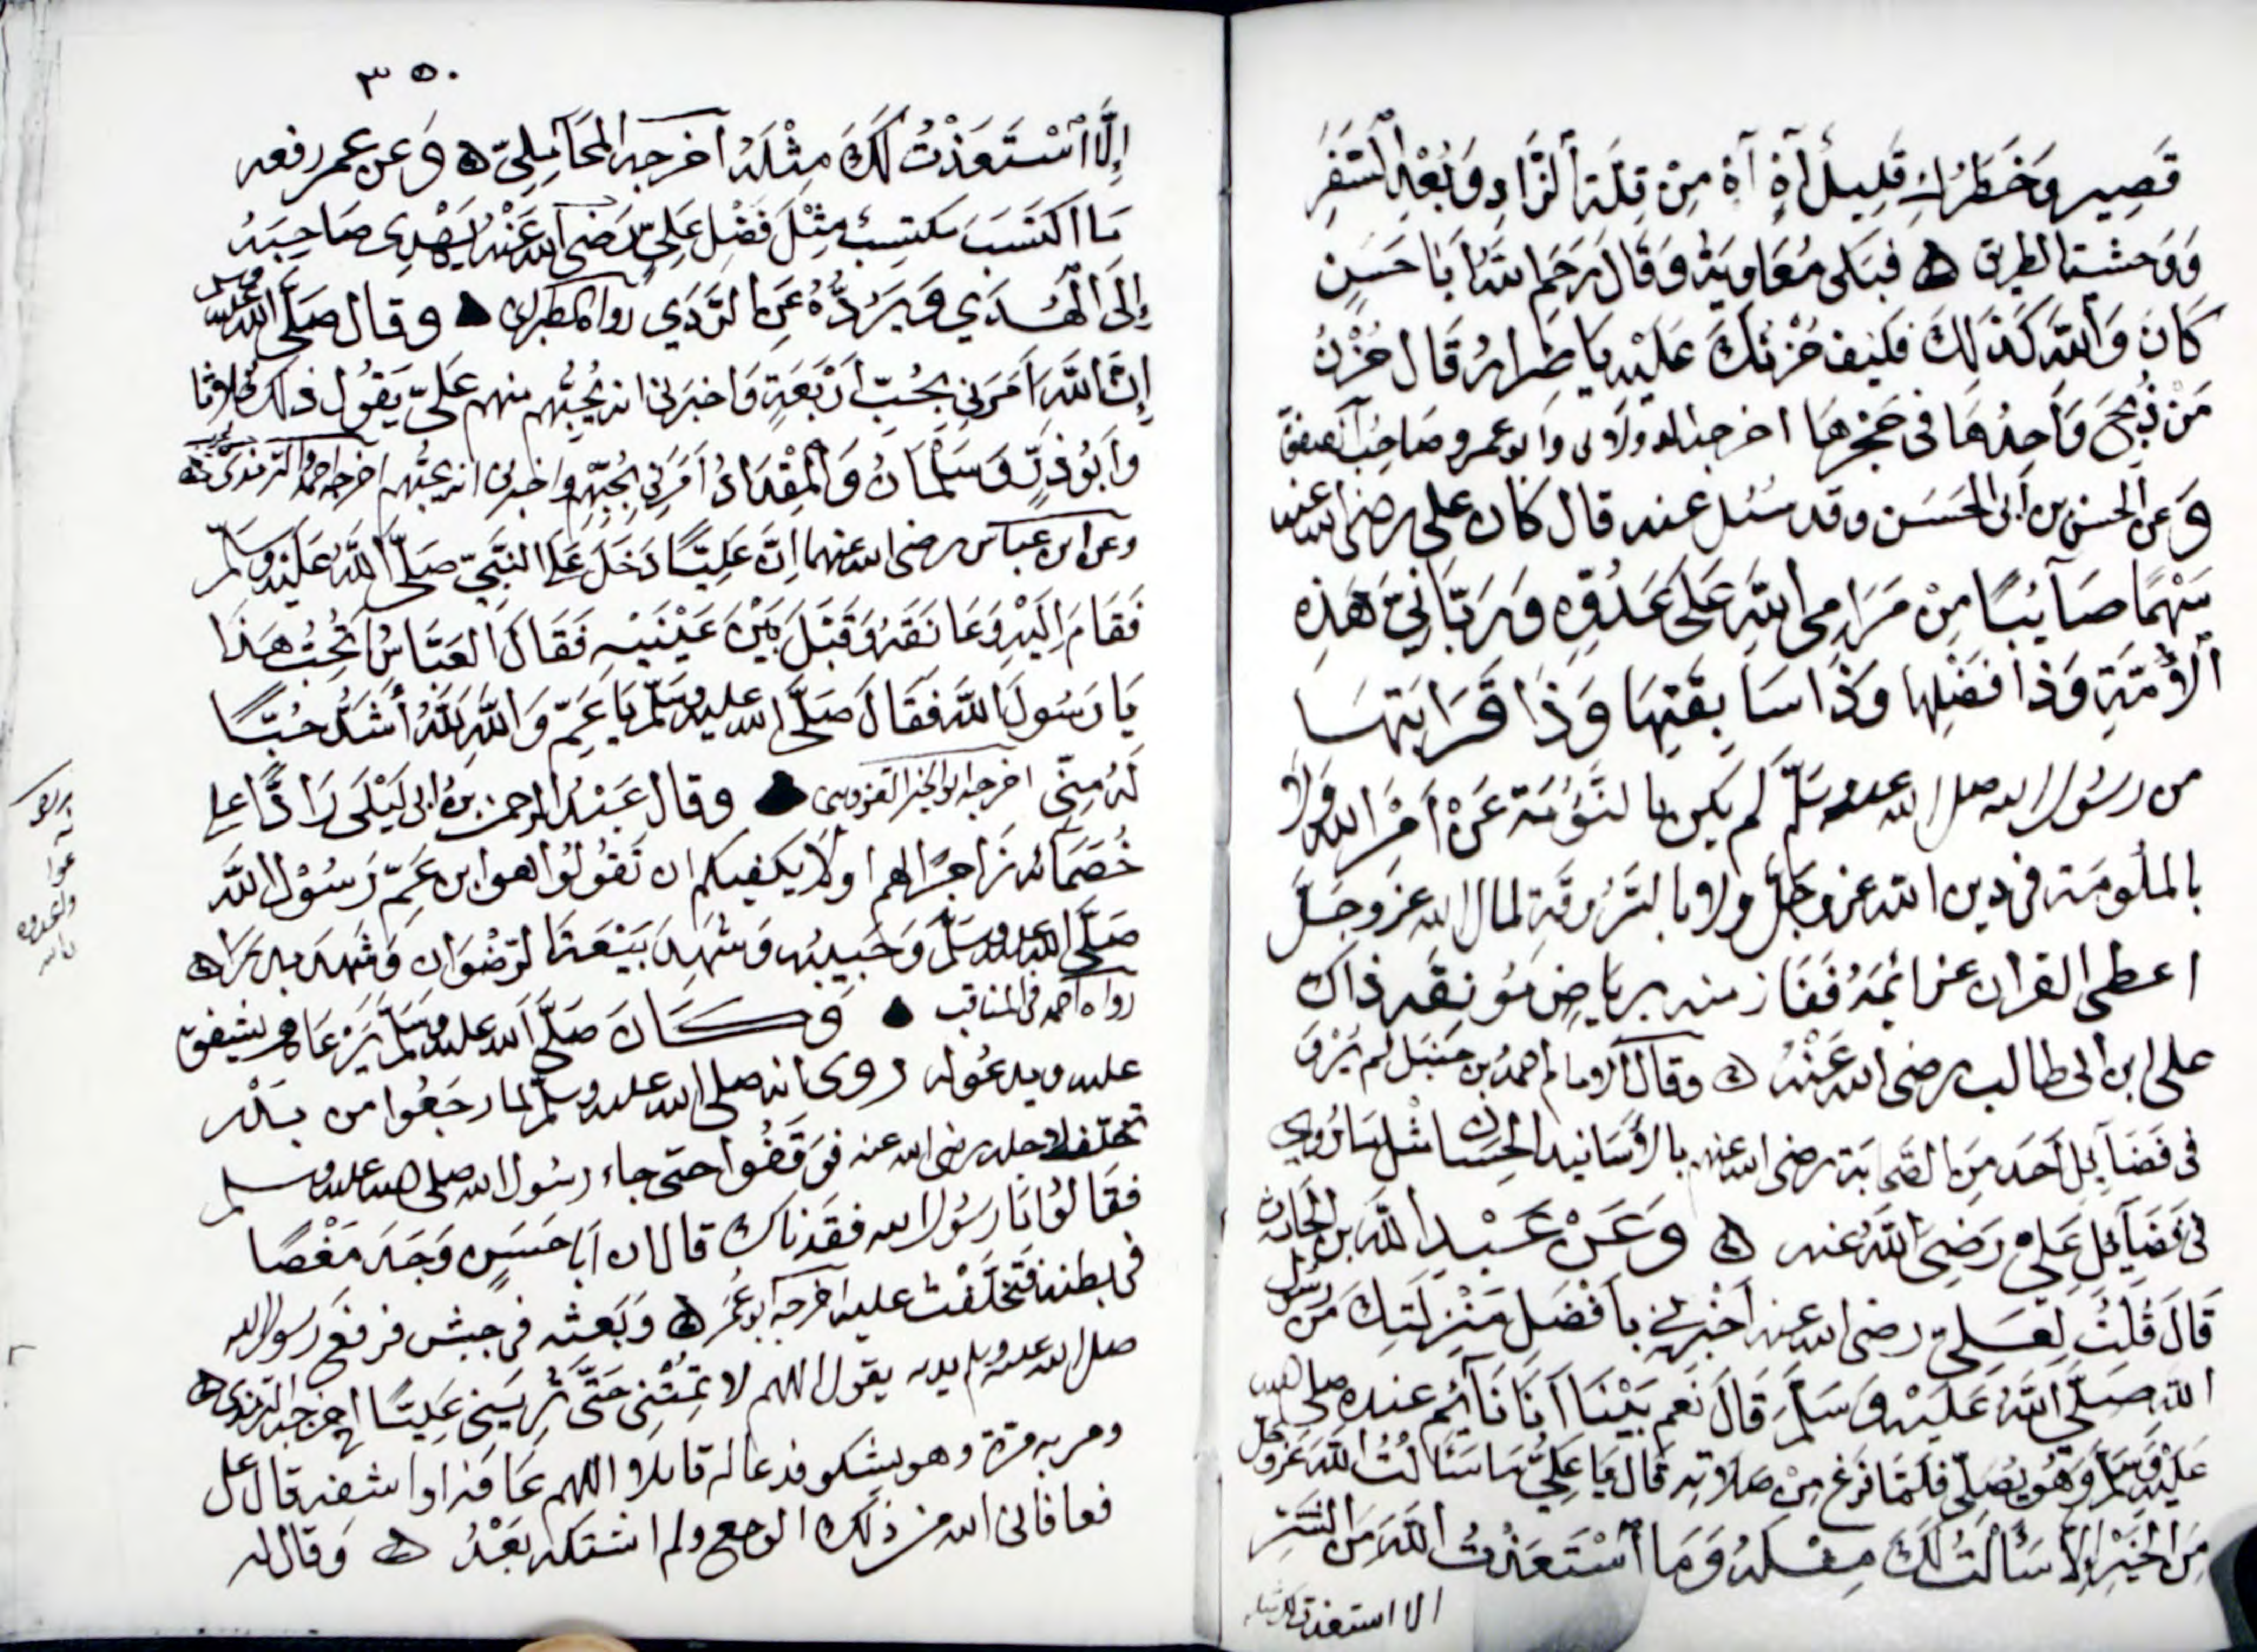 قَصِير وَخَطَرُكِ قَلِيلٌ آهٍ آهْ مِنْ قِلَّةِ ٱلزَّادِ وَبُعْدِ ٱلسَّفَرِ
وَوَحشيت الطريق ه فبَكى مُعَاوِيَةُ وَقَالَ رَحِمَ اللهُ ابَا حَسَنٍ
كَانَ وَٱللَّهِ كَذَلِكَ فكيف حُزْنُكَ عَلَيْهِ يَا ضِرارُ قَال حُزْنُ
مَنْ ذُبِحَ وَاحِدُهَا فى حَجْرِهَا اخرجه الدولابى وابو عمر وصاحب الصفوة
وَعن الحسن بن أبى الحَسَن وقد سُئل عنه قال كان على رضى الله عنه
سَهْمًا صَآئِبًا مِنْ مَرَامِى اللهِ عَلَى عَدُوِّهِ وَرَبَّانِيَّ هَذِهِ
ٱلأُمَّةِ وَذَا فَضْلِهَا وَذَا سَابِقَتِهَا وَذَا قَرَابَتِهَا
من رسُول الله صلى الله عليه وسَلّم لم يكن بالنَّؤُمَة عَنْ أمْر الله وَلَا
بالملُومَة فى دين الله عز وجَلّ ولا بالسَّرُوقَة لمال الله عز وجَلّ
اعطى القران عزائمَهُ فَفَاز منه برياضٍ مُونِقَه ذاك
على ابن ابى طالب رضى الله عَنْهُ ه وقال الامام احمدُ بن حنبَل لم يُرْوَ
فى فَضَآئِل أَحَد مِنَ الصَّحابَة رضى الله عنهم بالأَسَانيد الحِسَان مثل مَا رُوى
فى فَضَآئِل عَلِيّ رَضِيَ اللَّهُ عنه ه وَعَنْ عَبْد اللَّه بن الحَارث
قَالَ قُلْتُ لِعَلِيّ رضى الله عنه أخْبِرْنِى بأَفضَلِ مَنْزِلَتِكَ مَنْ رسُول
الله صَلَّى اللَّهُ عَلَيْهِ وَسَلَّمَ قَالَ نَعَم بَيْنَا أنَا نَآئِم عنده صلى الله
عَلَيْهِ وَسَلَّمَ وَهُوَ يُصَلِّى فَلَمَّا فَرَغَ مِنْ صَلَاتِهِ قَالَ يَا عَلِيُّ مَا سَأَلْتُ اللَّهَ عَزَّ وَجَلَّ
مِنَ الخَيْرِ إِلَّا سَأَلْتُ لَكَ مِثْلَهُ وَمَا ٱسْتَعَذْتُ اللَّهَ مَنَ الشَّرِّ
الا استعذت لك مثله
٣٥٠
إِلَّا ٱسْتَعَذْتُ لَكَ مِثْلَهُ أخرجه المحَآمِلِيّ ه وَعن عمر رفعه
مَا اكتَسَبَ مكتسِبٌ مِثْلَ فَضْل عَلِيّ رَضى الله عَنْهُ يَهْدِى صَاحِبَهُ
إِلَى ٱلْهُدَي وَيَرُدُّهُ عَنِ الرَّدَي رواه الطبرانى ه وقال صَلَّى الله عليه وسلم
إِنَّ اللَّهَ أمَرَنِى بِحُبّ أَرْبَعَةٍ وَاخبرنى انه يُحِبُّهم منهم عَلىّ يَقُول ذلك ثلاثا
وأبُو ذَرّ وَسَلْمَانُ وَالْمِقْدَادُ أمَرَنِى بِحُبّهِم واخبرنى انه يحبُّهم اخرجه احمد والترمذى ه
وعن ابن عباس رضى الله عنهما إنّ عَلِيًّا دَخَلَ عَلَى النَّبِيّ صَلَّى اللَّهُ عَلَيْهِ وسَلَّم
فَقَامَ إِلَيْهِ وَعَانَقَهُ وَقَبَّلَ بَيْنَ عَيْنَيْهِ فَقَالَ العَبَّاسُ أَتُحِبُّ هَذَا
يَا رَسُولَ اللَّهِ فَقَالَ صَلَّى الله عليه وسَلَّم يَا عَمِّ وَاللَّهِ لَلَّهُ أَشَدُّ حُبًّا
لَهُ مِنِّى اخرجه ابو الخير القزوينى ه وقال عَبْدُ الرحمن بنُ ابى لَيْلَى رَادًّا على
خُصَمَائه زَاجِرًا لهم اولا يكفيكم ان تَقُولُوا هو ابن عَمّ رَسُوْل اللَّه
صَلَّى الله عليه وسَلَّم وَحَبيبُه وَشَهِدَ بَيْعَةَ الرّضْوَان وَشَهِدَ بدرًا ه
رواه احمد فى المناقب ه وَكَانَ صَلَّى الله عليه وسلم يَرْعَاه ويشفق
عليه ويدعُو له روى انه صلى الله عليه وسلّم لما رجَعُوا من بَدْر
تخلّف رضى الله عنه فوَقَفُوا حتى جاء رسُول الله صلى الله عليه وسلم
فقَالُوا يَا رَسُول الله فقَدناك قال ان أبَا حَسَنٍ وَجَدَ مَغْصًا
فى بطنه فَتَخَلَّفْتُ عليه اخرجه ابو عُمَر ه وَبَعَثه فى جيش فرفَعَ رسول الله
صلى الله عليه وسلم يديه يقول اللهم لا تُمِتْنِى حَتَّى تُرِيَنِى عَلِيًّا اخرجه الترمذى ه
ومر به مرّة وهو يشكو فدعا له قايلا اللهم عَافه او اشفه قال على
فعافانى الله من ذلك الوجع ولم اشتكه بَعْدُ ه وَقال له